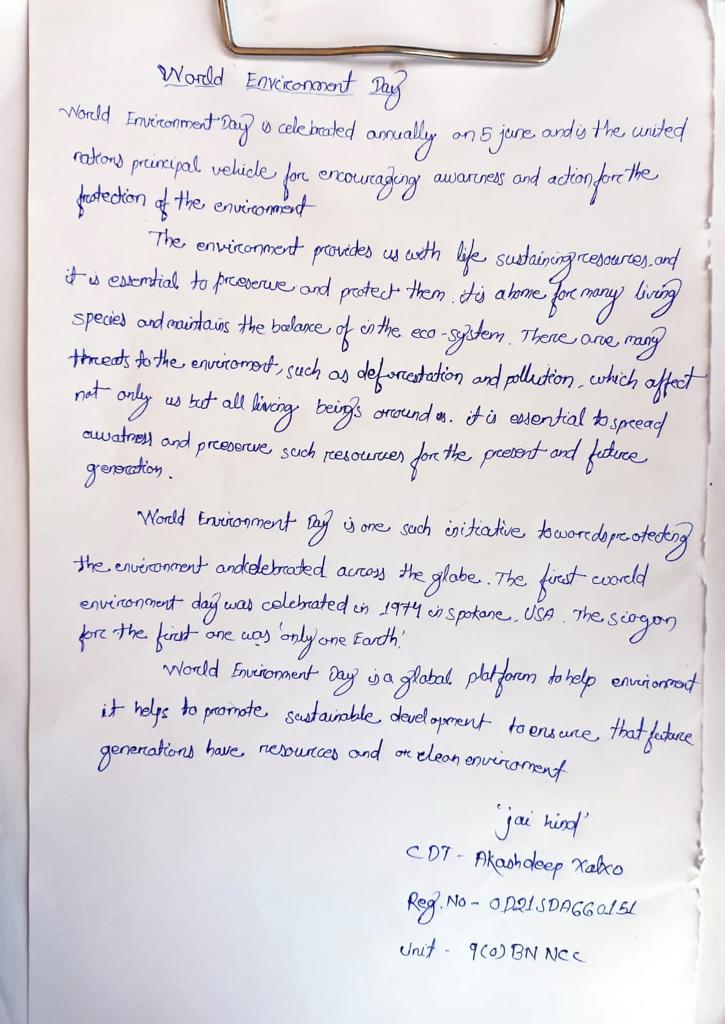 World Environment Day
World Environment Day is celebrated annually on 5 june and is the united
nations principal vehicle for encouraging awarness and action for the
protection of the environment
The environment provides us with life sustaining resources. and
it is essential to preserve and protect them. it is a home for many living
species and maintains the balance of in the eco-system. There are many
threats to the enviroment, such as deforestation and pollution, which affect
not only us but all living being's around us. it is essential to spread
awatness and preserve such resources for the present and future
generation.
World Environment Day is one such initiative towards protecting
the environment and celebrated across the globe. The first world
environment day was celebrated in 1974 in spokane, USA. The slogan
for the first one was 'only one Earth.'
World Environment Day is a global platform to help environment
it helps to promote sustainable development to ensure that future
generations have resources and a clean enviroment
'jai hind'
CDT - Akashdeep Xalxo
Reg. No - OD21SDA660151
Unit - 9(O) BN NCC